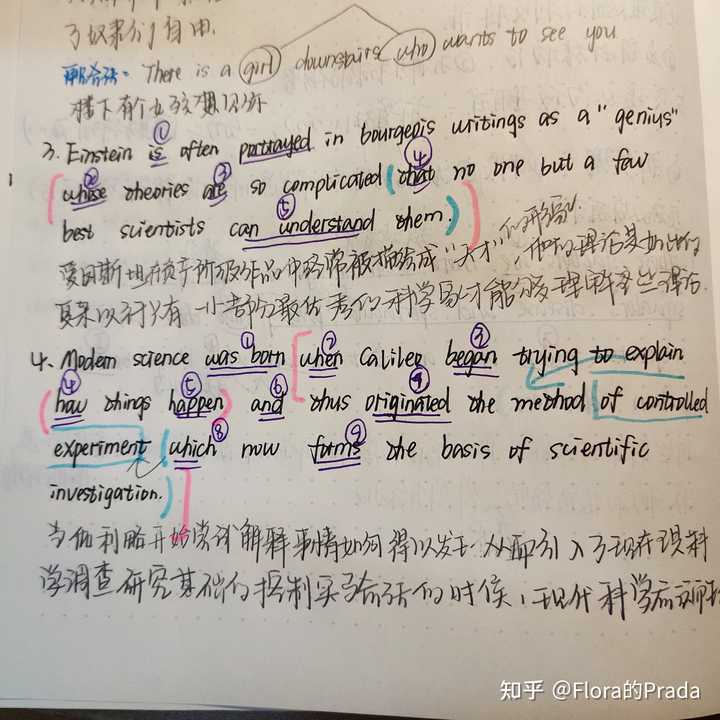 了奴隶们自由.
There is a girl downstairs who wants to see you
楼下有个女孩想见你
①
3. Einstein is often portrayed in bourgeois writings as a "genius"
② ③ ④
whose theories are so complicated (that no one but a few
⑤
best scientists can understand them.)
爱因斯坦在资产阶级作品中经常被描绘成"天才"的形象,他的理论是如此的
复杂以至于只有一小部分最优秀的科学家才能够理解这些理论.
① ② ③
4. Modern science was born when Galileo began trying to explain
④ ⑤ ⑥ ⑦
how things happen and thus originated the method of controlled
⑧ ⑨
experiment which now forms the basis of scientific
investigation.
当伽利略开始尝试解释事情如何得以发生从而引入了现在现科
学调查研究基础的控制实验方法的时候,现代科学应
知乎 @Flora的Prada